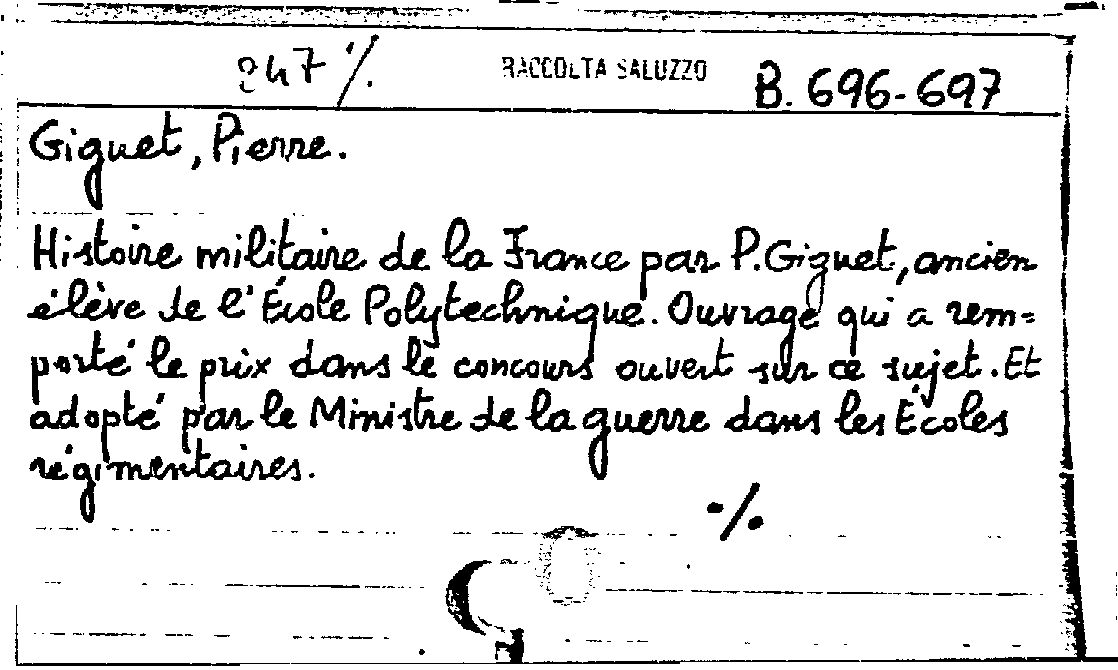 247 ·/. RACCOLTA SALUZZO B. 696-697
Giguet, Pierre.
Histoire militaire de la France par P. Giguet, ancien
élève de l'École Polytechnique. Ouvrage qui a rem=
porté le prix dans le concours ouvert sur ce sujet. Et
adopté par le Ministre de la guerre dans les Écoles
régimentaires.
·/.